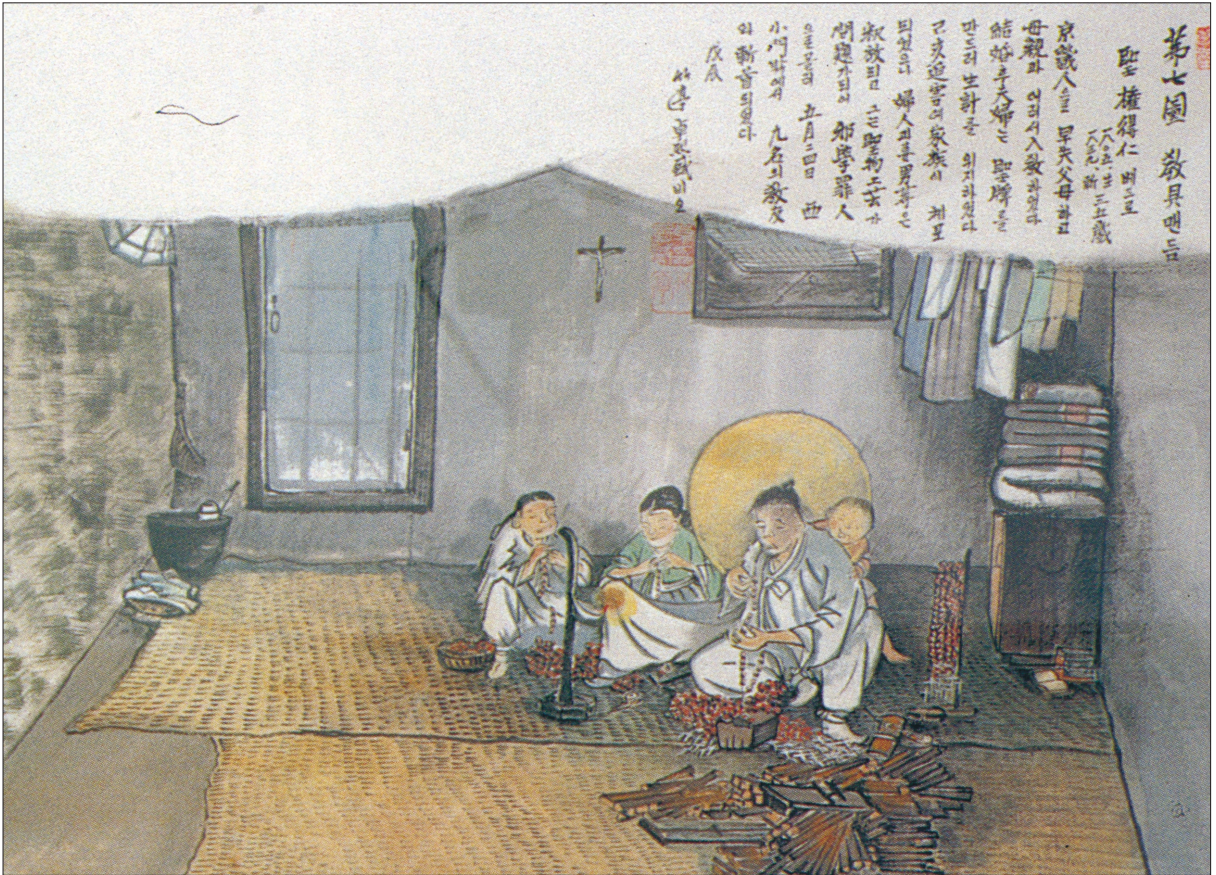 第七圖 敎具맨듬
聖權得仁 베드로
一八〇五、生
一八三九、斬 三五歲
京畿人으로 早失父母하고
母親과 어려서 入敎하였다
結婚후 夫婦는 聖牌를
만드러 生計를 위지하였다
己亥迫害에 家族시 체포
되었으나 婦人과 妻男등은
釈放되고 그는 聖物
問題가되어 邪學罪人
으로몰려 五月二四日 西
小門밖에서 九名의敎友
와 斬首되었다
戊辰
卓熙成비오